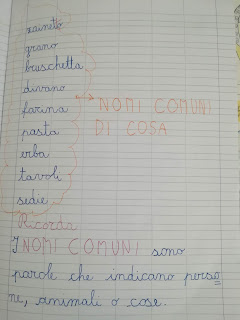 zainetto
grano
bruschetta
divano
farina
NOMI COMUNI
pasta
DI COSA
erba
tavolo
sedie
Ricorda
I NOMI COMUNI sono
parole che indicano perso
ne, animali o cose.